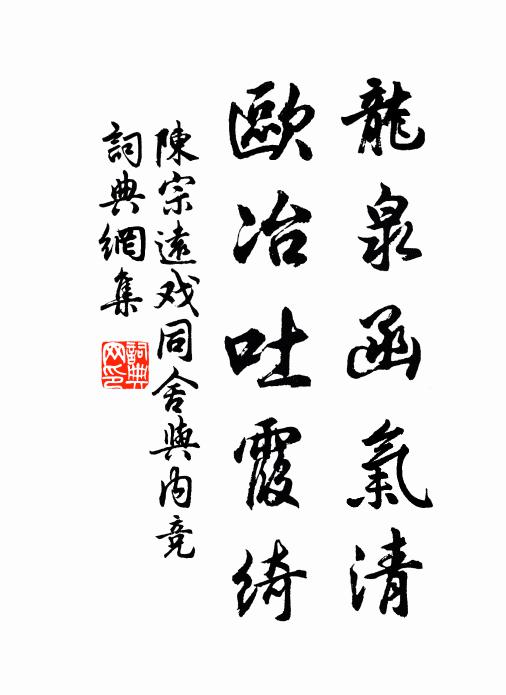 龍泉函氣清
歐冶吐霞綺
陳宗遠戏同舍與内竞
詞典網集
詞典网印